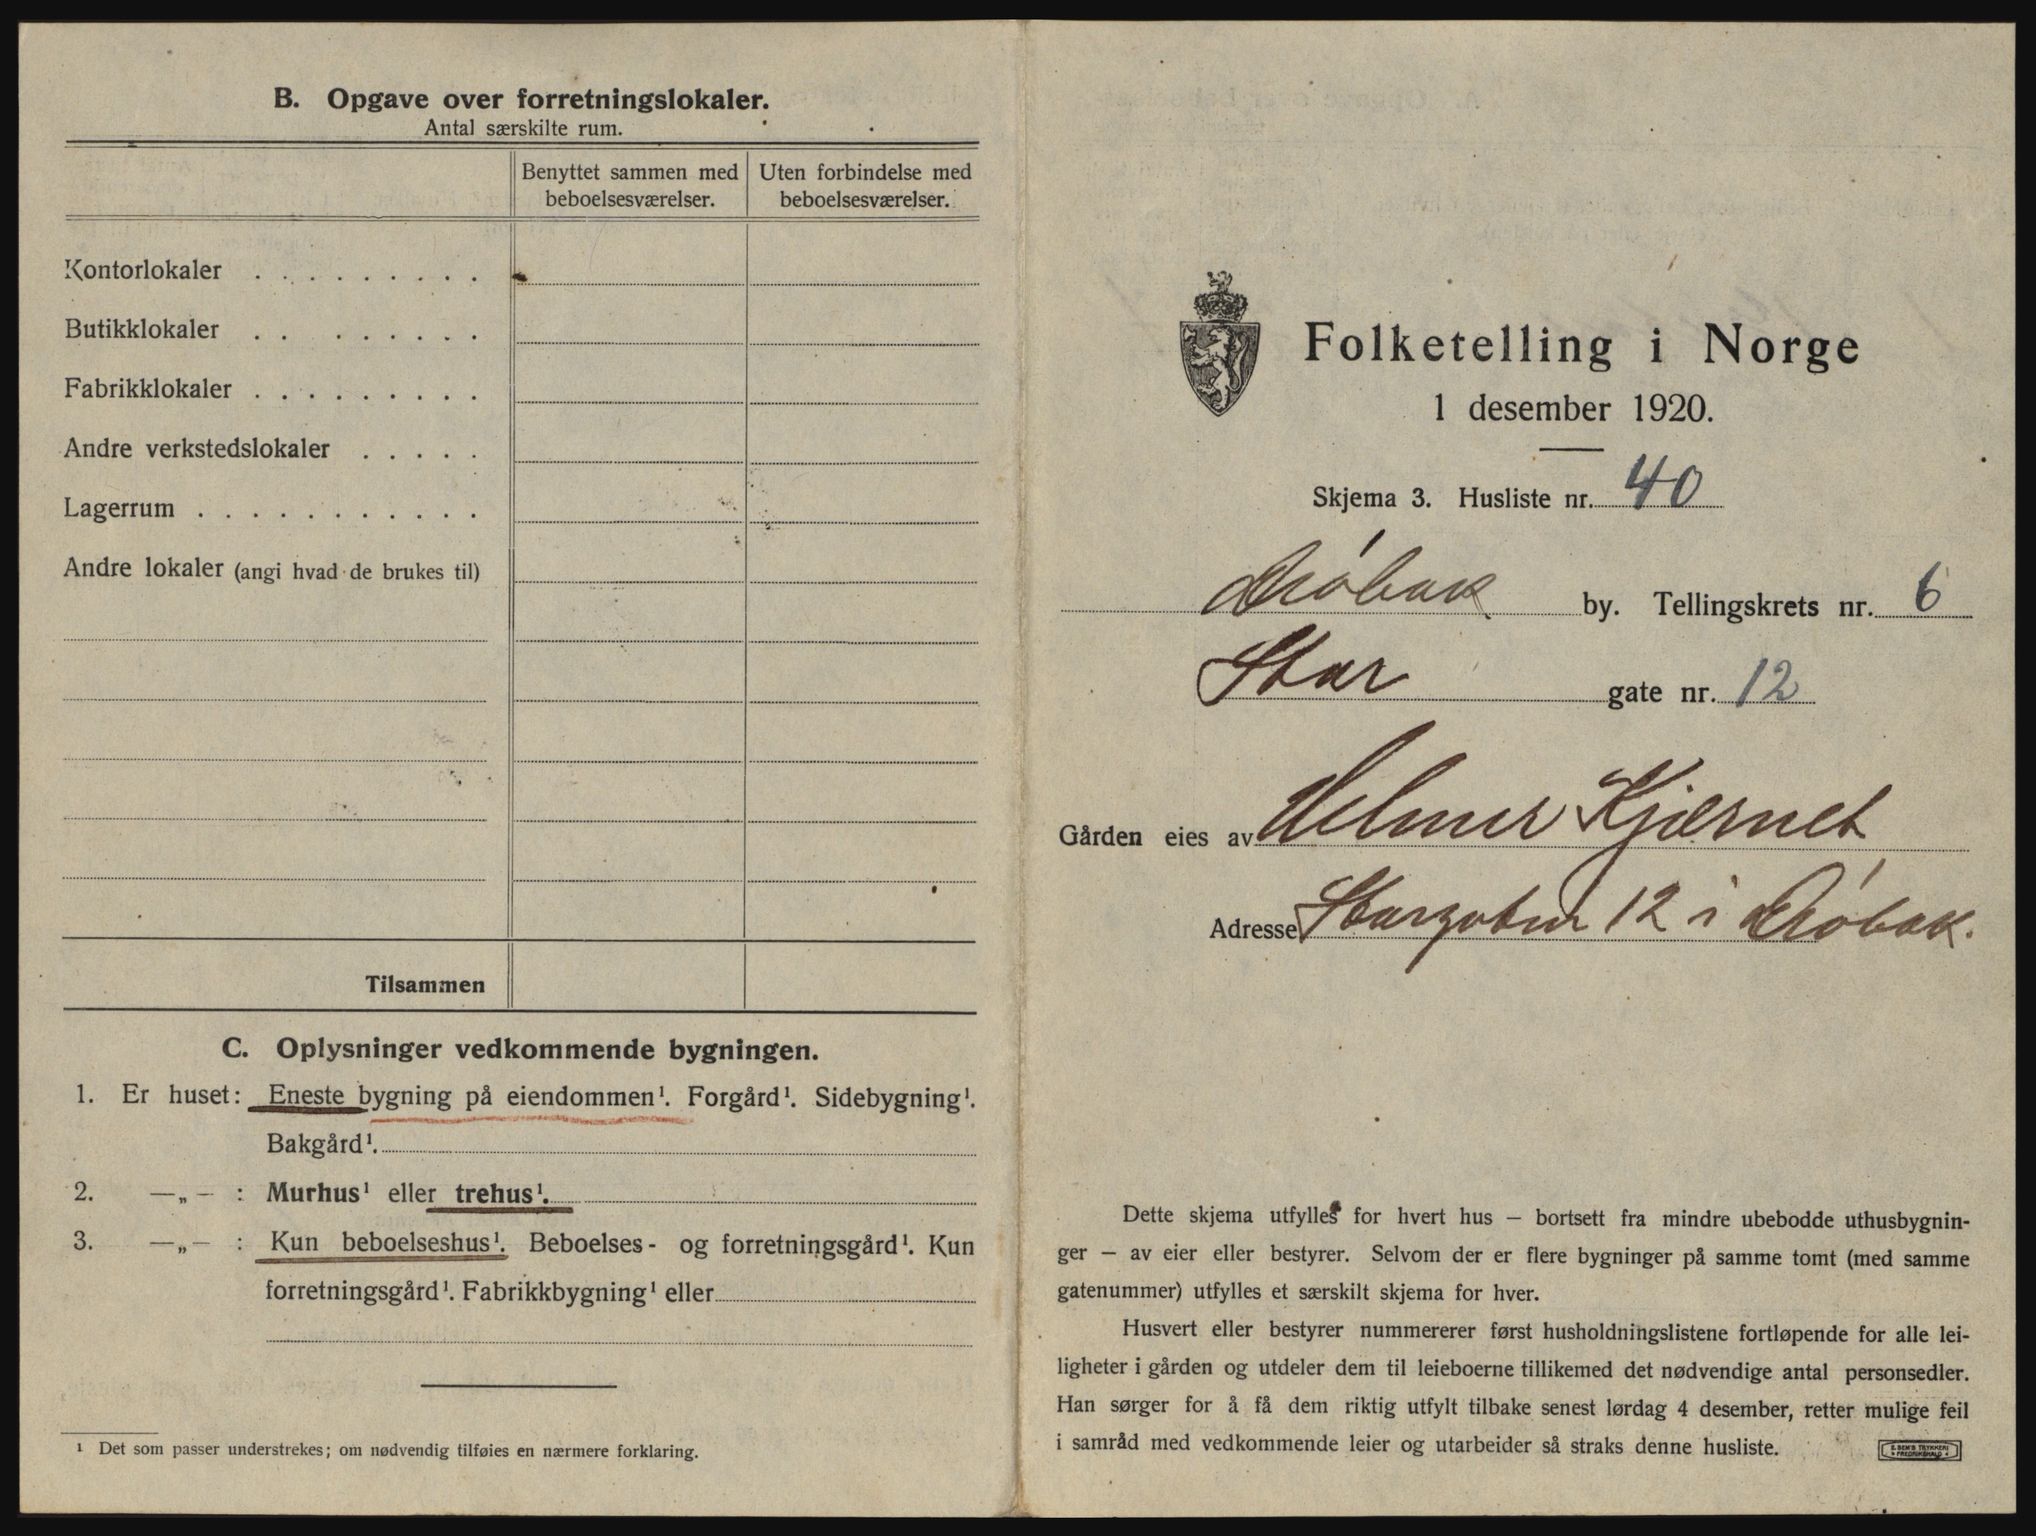 B. Opgave over forretningslokaler.
Antal særskilte rum.
Benyttet sammen med beboelsesværelser.
Uten forbindelse med beboelsesværelser.
Kontorlokaler . . . . . . . . .
Butikklokaler . . . . . . . .
Fabrikklokaler . . . . . . . . .
Andre verkstedslokaler . . . . .
Lagerrum . . . . . . . . . . .
Andre lokaler (angi hvad de brukes til)
Tilsammen
C. Oplysninger vedkommende bygningen.
1. Er huset: Eneste bygning på eiendommen¹. Forgård¹. Sidebygning¹.
Bakgård¹.
2. —„— : Murhus¹ eller trehus¹.
3. —„— : Kun beboelseshus¹. Beboelses- og forretningsgård¹. Kun
forretningsgård¹. Fabrikkbygning¹ eller
¹ Det som passer understrekes; om nødvendig tilføies en nærmere forklaring.
Folketelling i Norge
1 desember 1920.
Skjema 3. Husliste nr. 40
Drøbak by. Tellingskrets nr. 6
Stor gate nr. 12
Gården eies av Helmer Kjærnet
Adresse Storgaten 12 i Drøbak.
Dette skjema utfylles for hvert hus – bortsett fra mindre ubebodde uthusbygnin-
ger – av eier eller bestyrer. Selvom der er flere bygninger på samme tomt (med samme
gatenummer) utfylles et særskilt skjema for hver.
Husvert eller bestyrer nummererer først husholdningslistene fortløpende for alle lei-
ligheter i gården og utdeler dem til leieboerne tillikemed det nødvendige antal personsedler.
Han sørger for å få dem riktig utfylt tilbake senest lørdag 4 desember, retter mulige feil
i samråd med vedkommende leier og utarbeider så straks denne husliste.
E. SEM'S TRYKKERI
FREDRIKSHALD